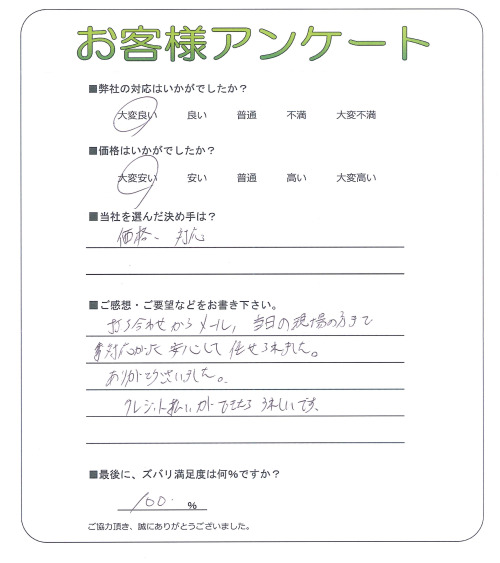 お客様アンケート
■弊社の対応はいかがでしたか？
大変良い 良い 普通 不満 大変不満
■価格はいかがでしたか？
大変安い 安い 普通 高い 大変高い
■当社を選んだ決め手は？
価格、対応
■ご感想・ご要望などをお書き下さい。
打ち合わせからメール、当日の現場の方まで
対応がよく安心して任せられました。
ありがとうございました。
クレジット払いができたらうれしいです。
■最後に、ズバリ満足度は何％ですか？
100 %
ご協力頂き、誠にありがとうございました。